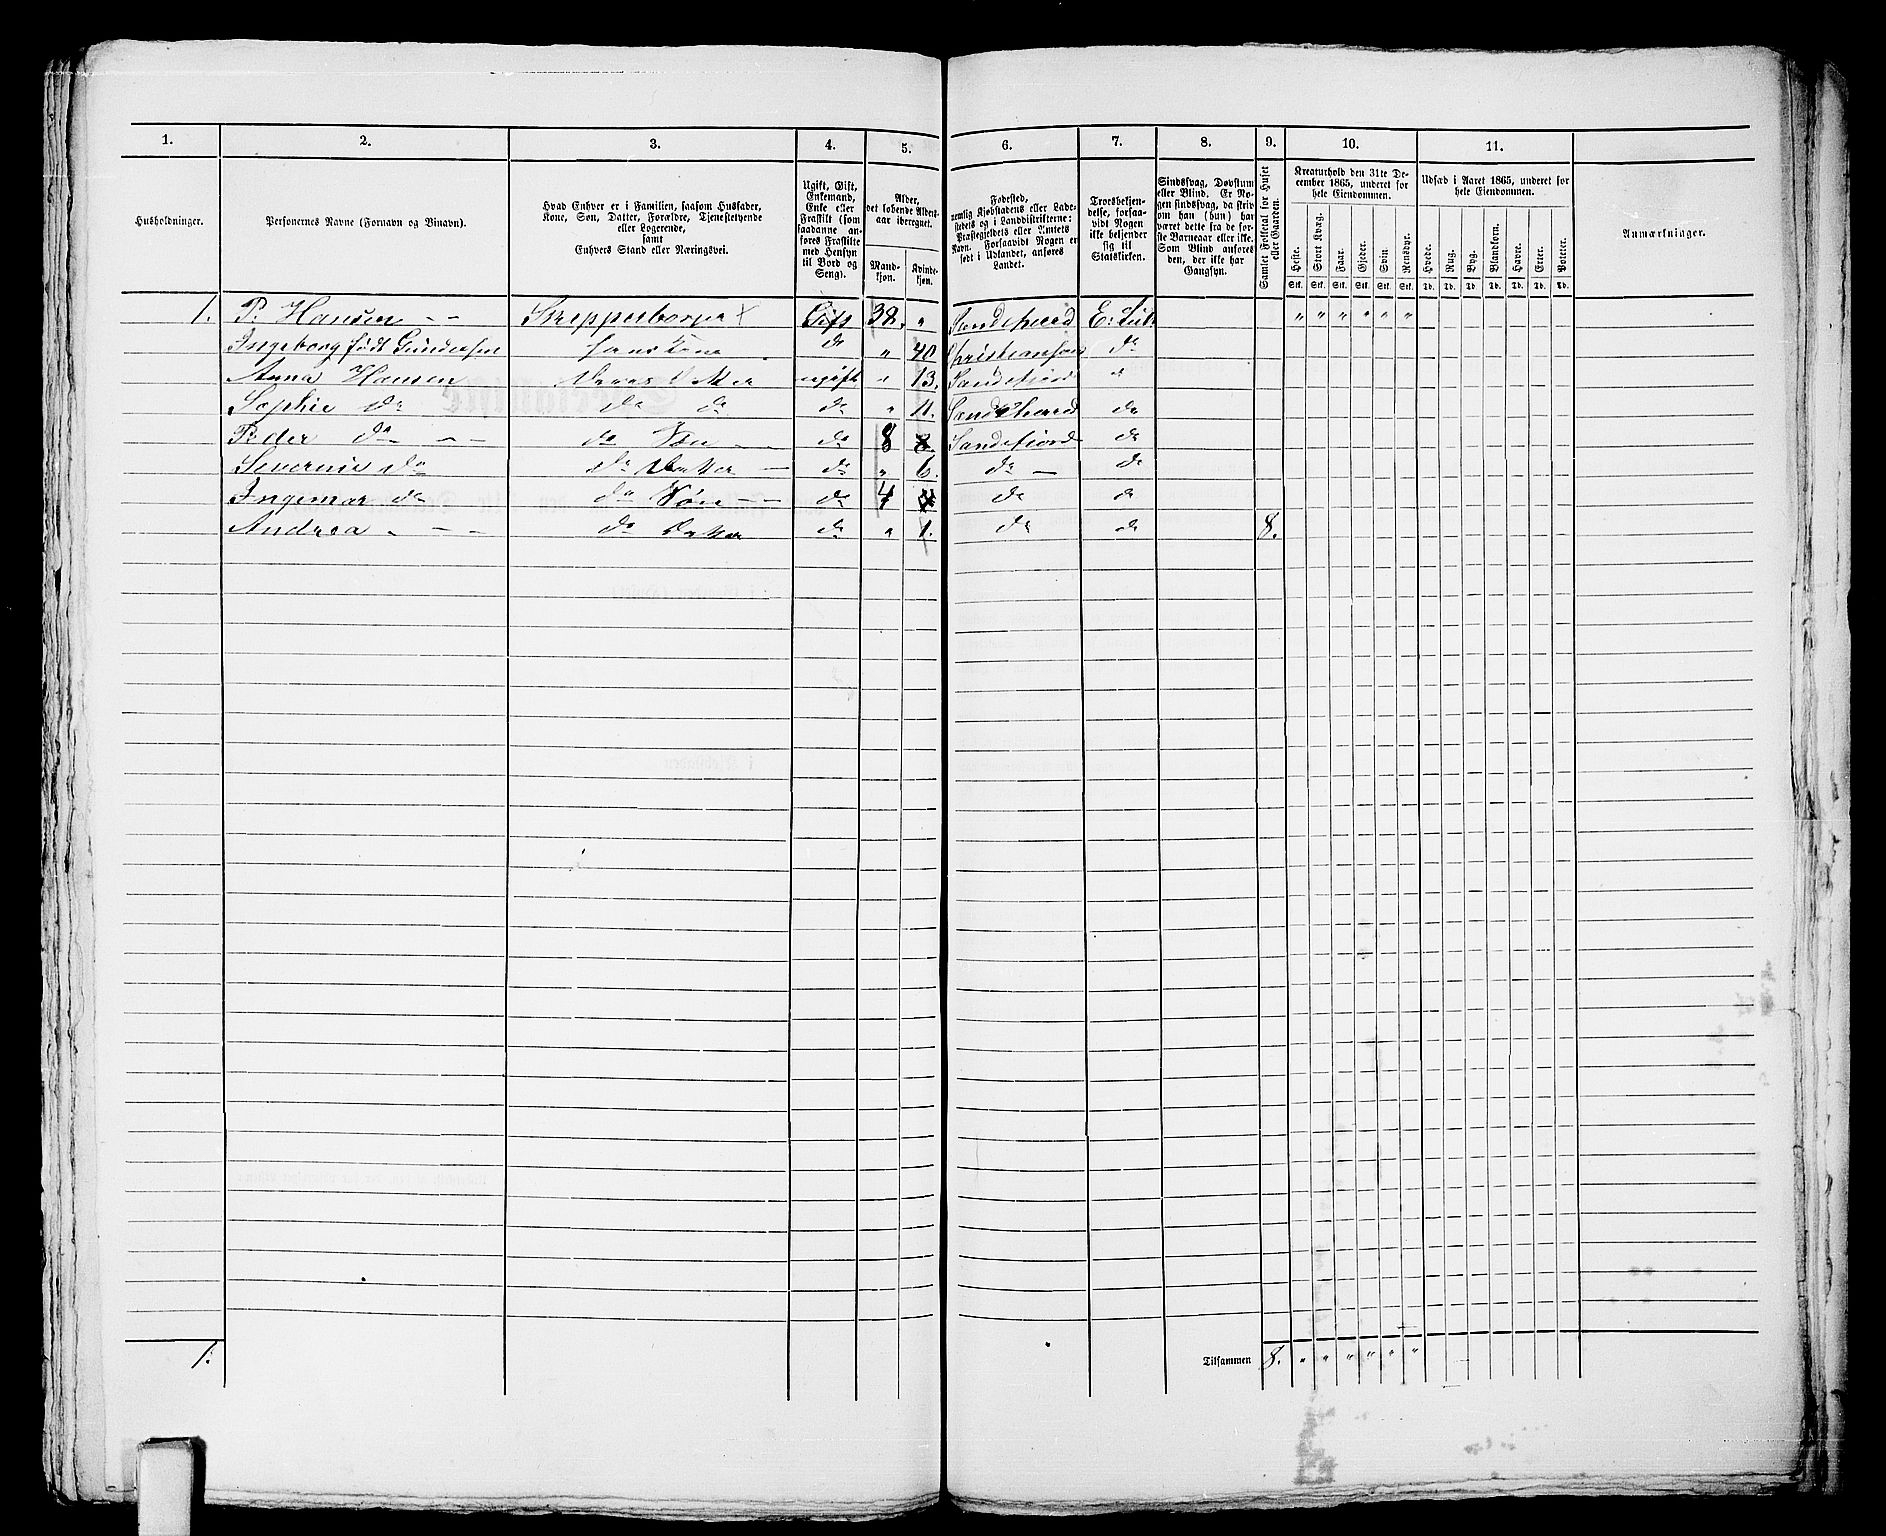 1. 2. 3. 4. 5. 6. 7. 8. 9. 10. 11.
Husholdninger.
Personernes Navne (Fornavn og Binavn).
Hvad Enhver er i Familien, saasom Husfader,
Kone, Søn, Datter, Forældre, Tjenestetyende
eller Logerende,
samt
Enhvers Stand eller Næringsvei.
Ugift, Gift,
Enkemand,
Enke eller
Fraskilt (som
saadanne an-
føres Fraskilte
med Hensyn
til Bord og
Seng).
Alder,
det løbende Alders-
aar iberegnet.
Mand-
kjøn.
Kvinde-
kjøn.
Fødested,
nemlig Kjøbstadens eller Lade-
stedets og i Landdistrikterne:
Præstegjeldets eller Amtets
Navn. Forsaavidt Nogen er
født i Udlandet, anføres
Landet.
Troesbekjen-
delse, forsaa-
vidt Nogen
ikke bekjender
sig til
Statskirken.
Sindssvag, Døvstum
eller Blind. Er No-
gen sindssvag, da skriv
om han (hun) har
været dette fra de før-
ste Barneaar eller ikke.
Som Blind anføres
den, der ikke har
Gangsyn.
Samlet Folketal for Huset
eller Gaarden.
Kreaturhold den 31te De-
cember 1865, underet for
hele Eiendommen.
Heste. Stort Kvæg. Faar. Gjeder. Svin. Rensdyr.
Stk. Stk. Stk. Stk. Stk. Stk.
Udsæd i Aaret 1865, underet for
hele Eiendommen.
Hvede. Rug. Byg. Blandkorn. Havre. Erter. Poteter.
Td. Td. Td. Td. Td. Td. Td.
Anmærkninger.
1. P. Hansen - - Skipperborger x Gift 38. " Sandeherred E: Luth " " " " " "
Ingeborg født Gundersen hans Kone do " 40. Christianssand do
Anna Hansen Deres Datter ugift " 13. Sandefjord "
Sophie do do do do " 11. Sandeherred do
Peder do - - do Søn - do 8 8. Sandefjord do
Severine do do Datter - do " 6. do - do
Ingemar do do Søn - - do 4 4 do do
Andrea - - - do Datter do " 1. do do 8.
1. Tilsammen 8. " " " " " "